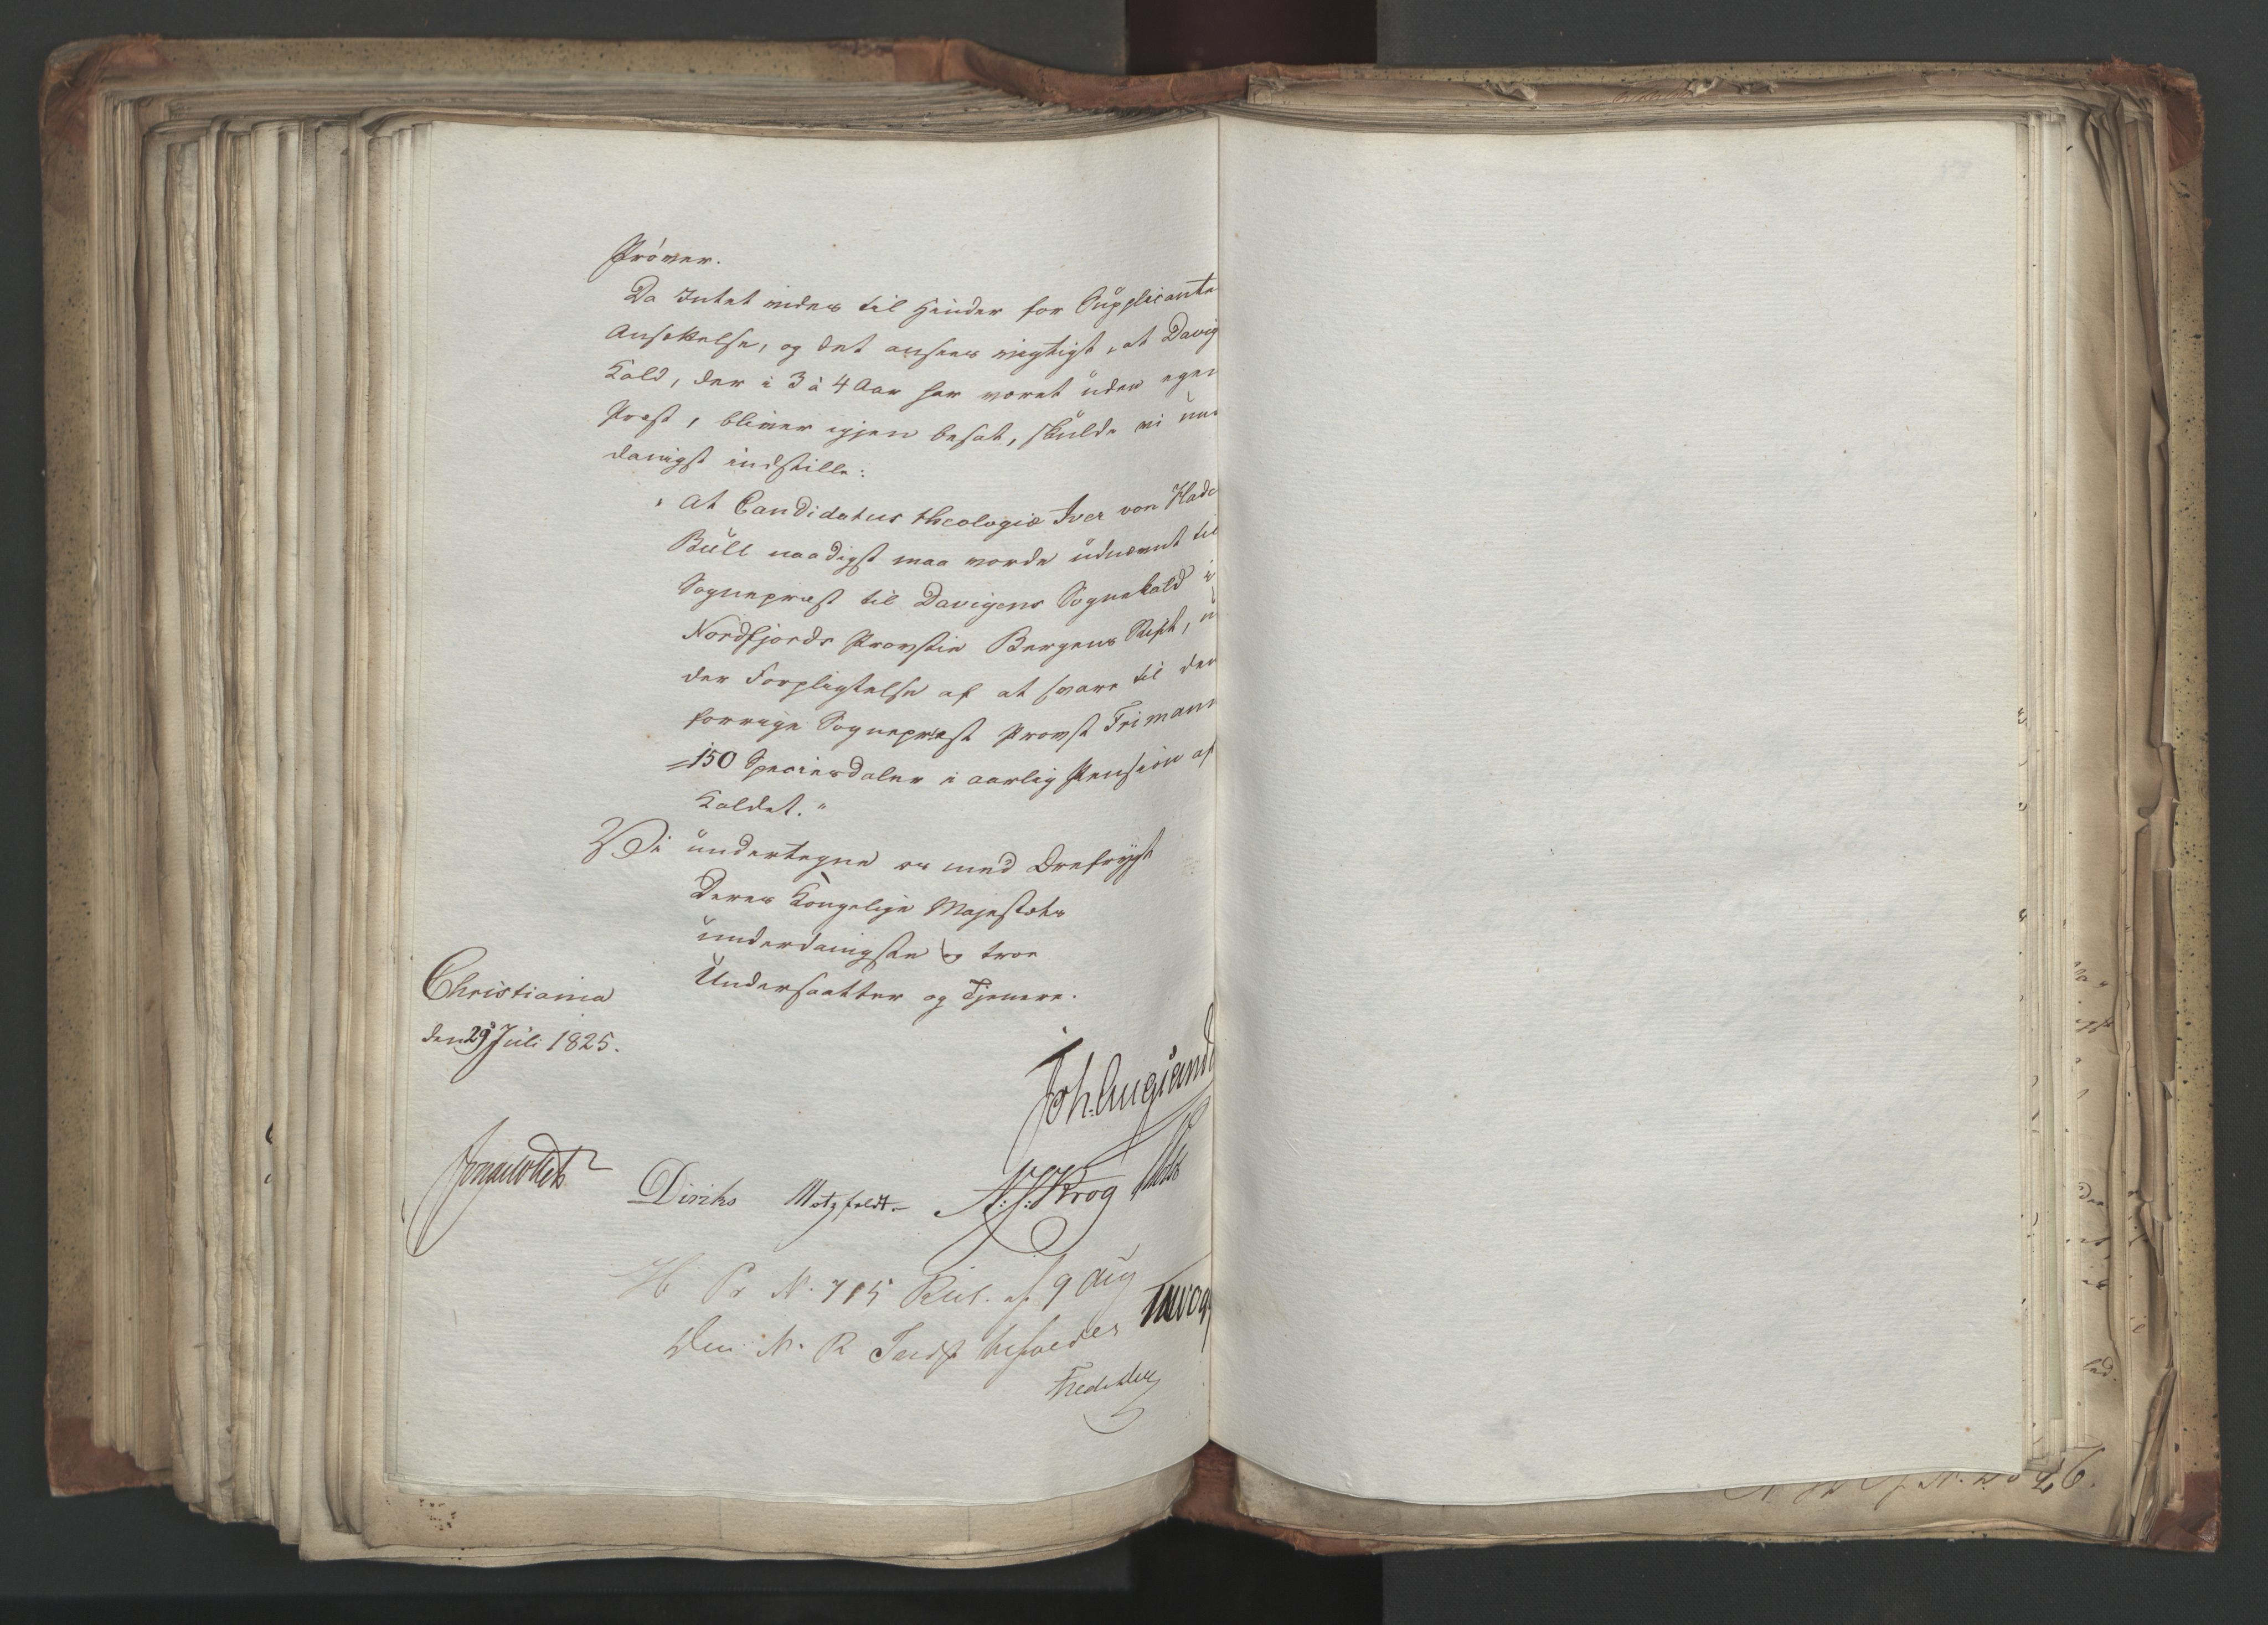 Prøver.
Da Intet vides til Hinder for Supplicante
Ansættelse, og det ansees vigtigst, at Davig
Kald, der i 3 à 4 Aar har været uden egen
Præst, bliver igjen besat, skulde vi un
danigst indstille:
" At Candidatus theologiæ Iver von Hado
Bull naadigst maa vorde udnævnt til
Sognepræst til Davigens Sognekald i
Nordfjords Provstie Bergens Stift, un
der Forpligtelse af at svare til den
forrige Sognepræst Provst Frimann
150 Speciesdaler i aarlig Pension af
Kaldet."
Vi undertegne os med Ærefrygt
Deres Kongelige Majestæts
underdanigste og troe
Undersaatter og Tjenere.
Christiania
den 29 Juli 1825.
Joh. Aug: Sand
Diriks Motzfeldt. N. J. Krog
N. 715 Res. af 9 Aug
Den N. R. Indst. bifaldes